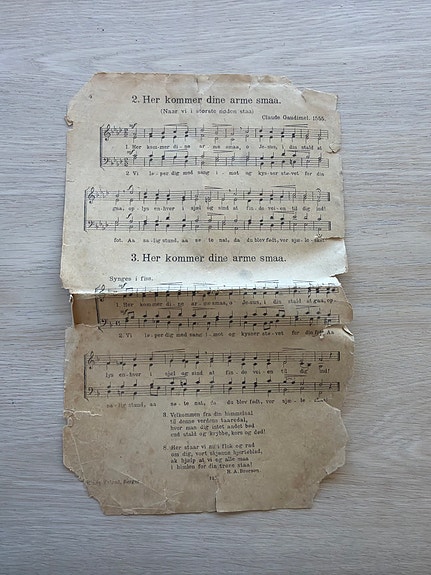 4
2. Her kommer dine arme smaa.
(Naar vi i største nøden staa)
Claude Gaudimel. 1555.
mf
1. Her kom-mer di-ne ar-me smaa, o Je-sus, i din stald at
mf
2. Vi lø-per dig med sang i mot og kys-ser stø-vet for din
gaa; op lys en-hver i sjæl og sind at fin-de vei-en til dig ind!
fot. Aa sa-lig stund, aa sø-te nat, da du blev født, vor sjæ-le-skat!
3. Her kommer dine arme smaa.
Synges i fiss.
mf
1. Her kom-mer di-ne ar-me smaa, o Je-sus, i din stald at gaa, op-
mf
2. Vi lø-per dig med sang i mot og kys-ser støvet for din fot. Aa
lys en-hver i sjæl og sind at fin-de vei-en til dig ind!
sa-lig stund, aa sø-te nat, da du blev født, vor sjæ-le
3. Velkommen fra din himmelsal
til denne verdens taaredal,
hvor man dig intet andet bød
end stald og krybbe, kors og død!
8. Her staar vi nu i flok og rad
om dig, vort skjønne hjerteblad,
ak hjælp at vi og alle maa
i himlen for din trone staa!
H. A. Brorson.